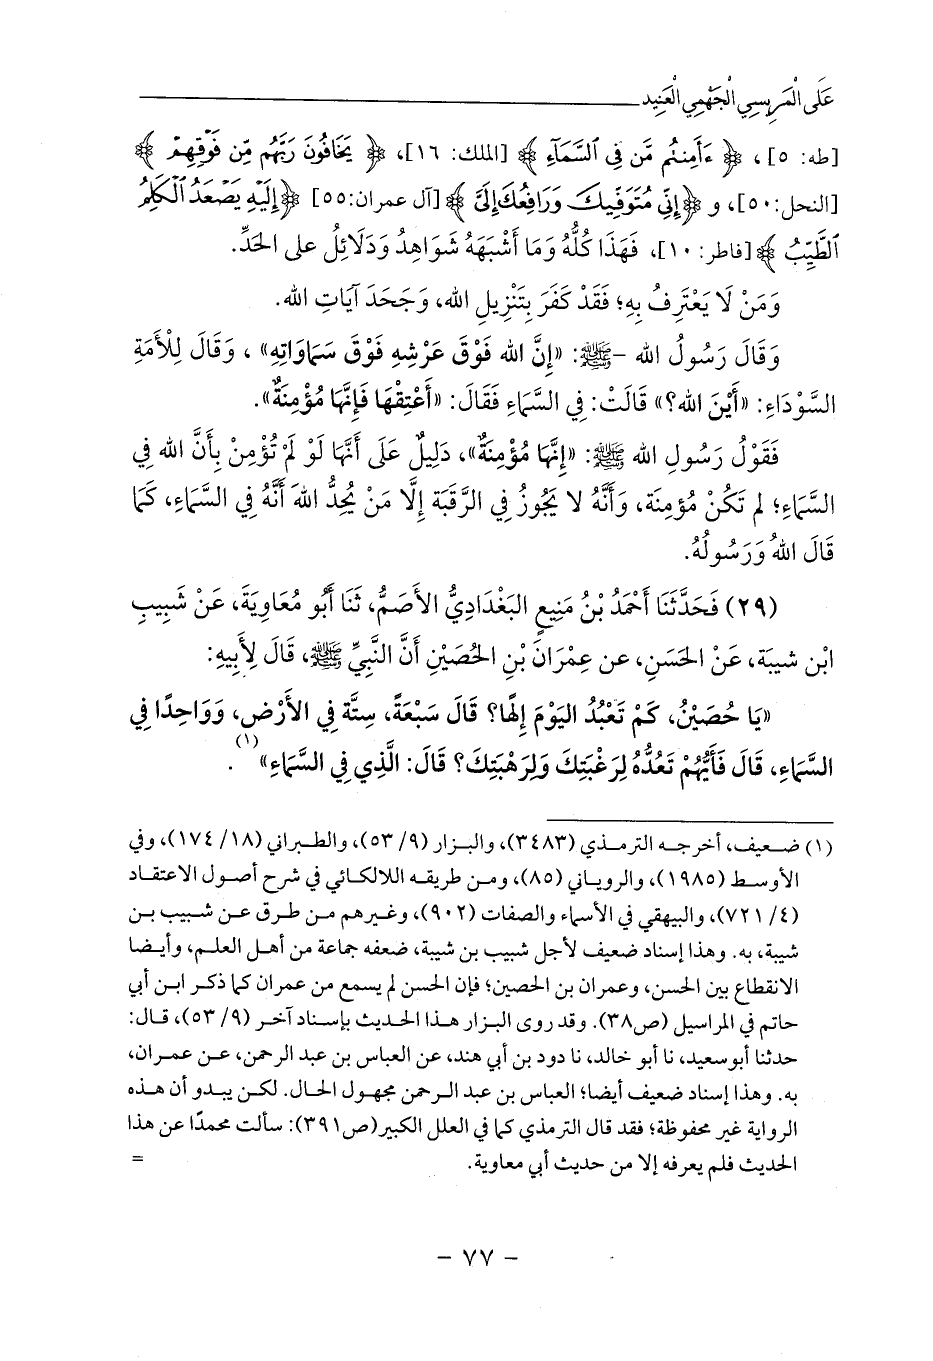 عَلَى الْمَرِيسِي الْجَهْمِي الْعَنِيد
[طه: ٥]، ﴿ءَأَمِنتُم مَّن فِي ٱلسَّمَآءِ﴾ [الملك: ١٦]، ﴿يَخَافُونَ رَبَّهُم مِّن فَوْقِهِمْ﴾
[النحل: ٥٠]، و ﴿إِنِّي مُتَوَفِّيكَ وَرَافِعُكَ إِلَيَّ﴾ [آل عمران: ٥٥] ﴿إِلَيْهِ يَصْعَدُ ٱلْكَلِمُ
ٱلطَّيِّبُ﴾ [فاطر: ١٠]، فَهَذَا كُلُّهُ وَمَا أَشْبَهَهُ شَوَاهِدُ وَدَلَائِلُ على الحَدِّ.
وَمَنْ لَا يَعْتَرِفُ بِهِ؛ فَقَدْ كَفَرَ بِتَنْزِيلِ الله، وَجَحَدَ آيَاتِ الله.
وَقَالَ رَسُولُ الله -ﷺ: «إِنَّ الله فَوْقَ عَرْشِهِ فَوْقَ سَمَاوَاتِهِ» ، وَقَالَ لِلْأَمَةِ
السَّوْدَاءِ: «أَيْنَ الله؟» قَالَتْ: فِي السَّمَاءِ فَقَالَ: «أَعْتِقْهَا فَإِنَّهَا مُؤْمِنَةٌ».
فَقَوْلُ رَسُولِ الله ﷺ: «إِنَّهَا مُؤْمِنَةٌ»، دَلِيلٌ عَلَى أَنَّهَا لَوْ لَمْ تُؤْمِنْ بِأَنَّ الله فِي
السَّمَاءِ؛ لم تَكُنْ مُؤْمِنَة، وَأَنَّهُ لا يَجُوزُ فِي الرَّقَبَةِ إِلَّا مَنْ يَحُدُّ اللهَ أَنَّهُ فِي السَّمَاءِ، كَمَا
قَالَ اللهُ وَرَسُولُهُ.
(٢٩) فَحَدَّثَنَا أَحْمَدُ بْنُ مَنِيعٍ البَغْدَادِيُّ الأَصَمُّ، ثَنَا أَبُو مُعَاوِيَةَ، عَنْ شَبِيبِ
ابْن شيبة، عَنْ الحَسَنِ، عن عِمْرَانَ بْنِ الحُصَيْنِ أَنَّ النَّبِيَّ ﷺ، قَالَ لِأَبِيهِ:
«يَا حُصَيْنُ، كَمْ تَعْبُدُ اليَوْمَ إِلهًا؟ قَالَ سَبْعَةً، سِتَّة فِي الأَرْضِ، وَوَاحِدًا فِي
السَّمَاءِ، قَالَ فَأَيُّهُمْ تَعُدُّهُ لِرَغْبَتِكَ وَلِرَهْبَتِكَ؟ قَالَ: الَّذِي فِي السَّمَاءِ»(١) .
(١) ضعيف، أخرجه الترمذي (٣٤٨٣)، والبزار (٩/ ٥٣)، والطبراني (١٨/ ١٧٤)، وفي
الأوسط (١٩٨٥)، والروياني (٨٥)، ومن طريقه اللالكائي في شرح أصول الاعتقاد
(٤/ ٧٢١)، والبيهقي في الأسماء والصفات (٩٠٢)، وغيرهم من طرق عن شبيب بن
شيبة، به. وهذا إسناد ضعيف لأجل شبيب بن شيبة، ضعفه جماعة من أهل العلم، وأيضا
الانقطاع بين الحسن، وعمران بن الحصين؛ فإن الحسن لم يسمع من عمران كما ذكر ابن أبي
حاتم في المراسيل (ص٣٨). وقد روى البزار هذا الحديث بإسناد آخر (٩/ ٥٣)، قال:
حدثنا أبو سعيد، نا أبو خالد، نا دود بن أبي هند، عن العباس بن عبد الرحمن، عن عمران،
به. وهذا إسناد ضعيف أيضا؛ العباس بن عبد الرحمن مجهول الحال. لكن يبدو أن هذه
الرواية غير محفوظة؛ فقد قال الترمذي كما في العلل الكبير(ص٣٩١): سألت محمدًا عن هذا
الحديث فلم يعرفه إلا من حديث أبي معاوية. =
- ٧٧ -